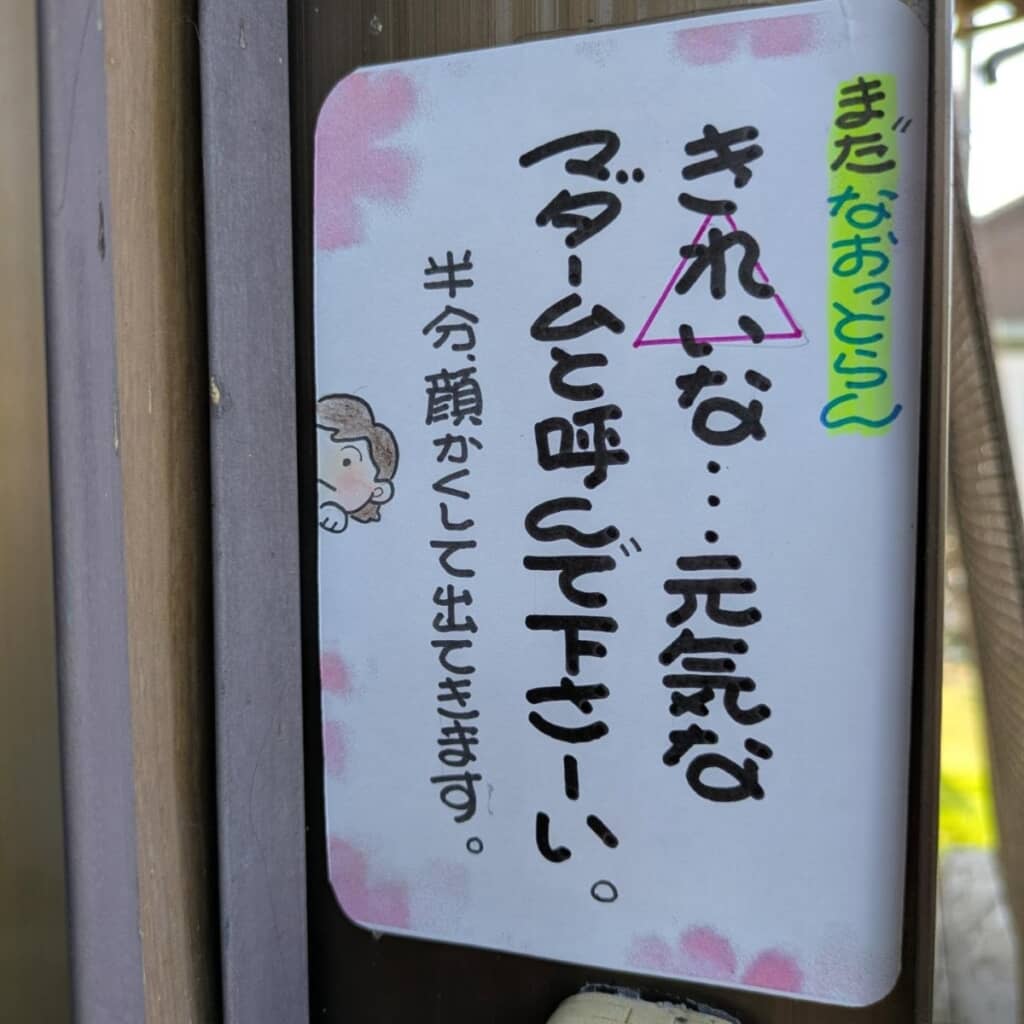 まだなおっとらん
きれいな…元気な
マダームと呼んで下さーい。
半分、顔かくして出てきます。